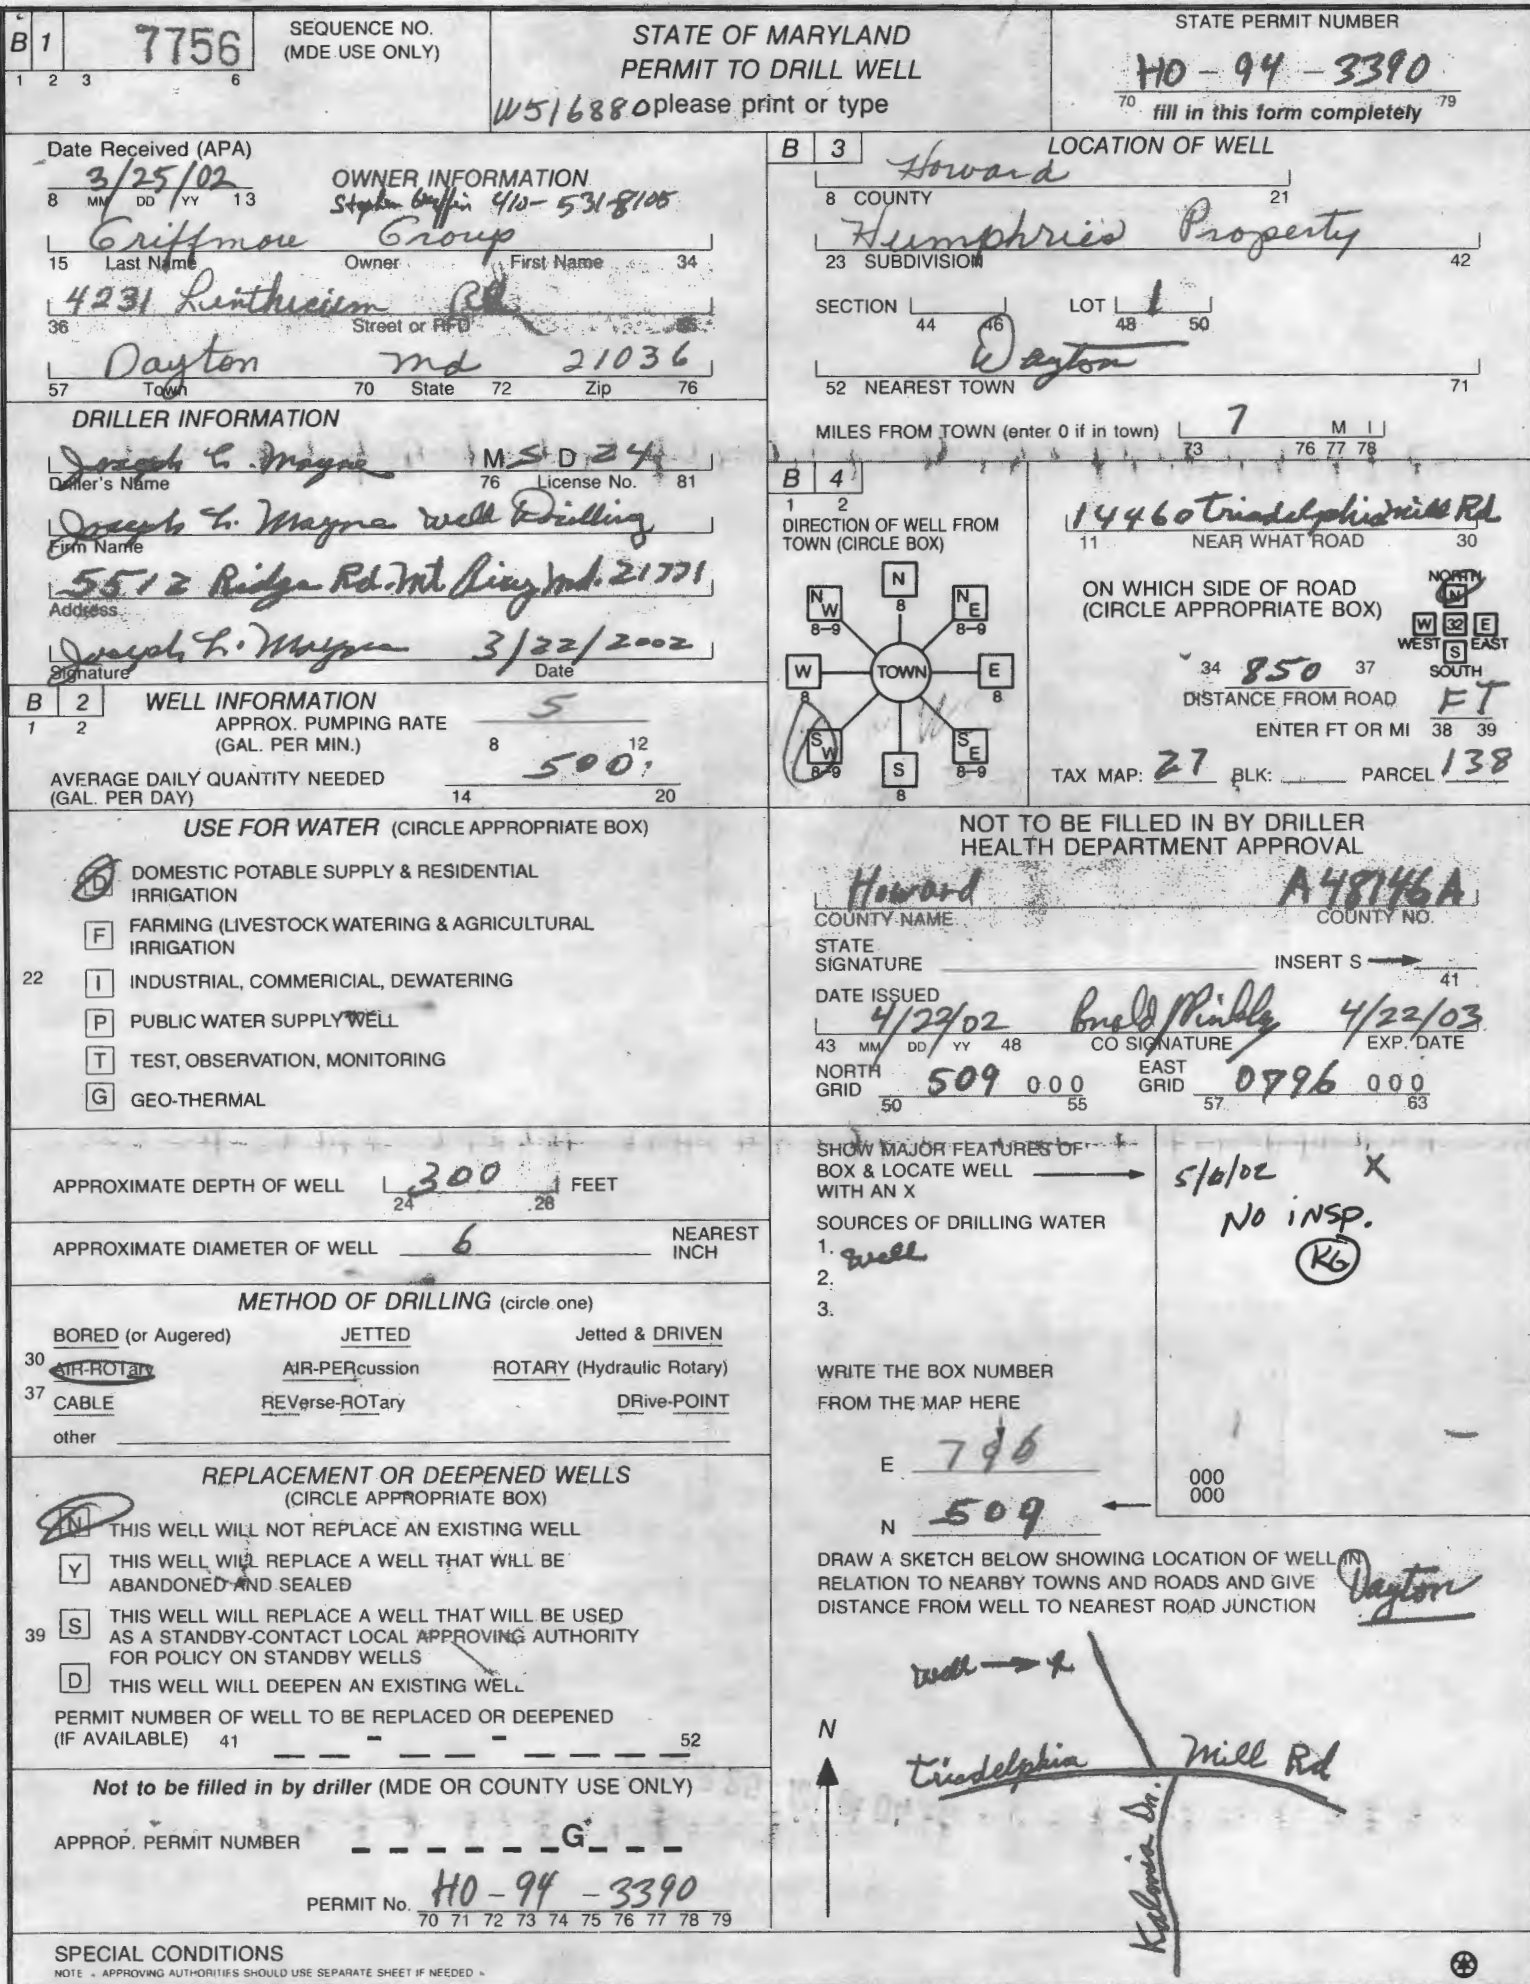 B 1 7756
1 2 3 6
SEQUENCE NO.
(MDE USE ONLY)
STATE OF MARYLAND
PERMIT TO DRILL WELL
W516880 please print or type
STATE PERMIT NUMBER
HO - 94 - 3390
70 79
fill in this form completely
Date Received (APA)
3/25/02
8 MM DD YY 13
OWNER INFORMATION
Stephen Griffin 410-531-8105
Griffmore Group
15 Last Name Owner First Name 34
4231 Linthicum Rd
36 Street or RFD
Dayton Md 21036
57 Town 70 State 72 Zip 76
DRILLER INFORMATION
Joseph L. Mayne M S D 24
Driller's Name 76 License No. 81
Joseph L. Mayne Well Drilling
Firm Name
5512 Ridge Rd. Mt Airy Md. 21771
Address
Joseph L. Mayne 3/22/2002
Signature Date
B 2 WELL INFORMATION
1 2
APPROX. PUMPING RATE 5
(GAL. PER MIN.) 8 12
AVERAGE DAILY QUANTITY NEEDED 500
(GAL. PER DAY) 14 20
USE FOR WATER (CIRCLE APPROPRIATE BOX)
D DOMESTIC POTABLE SUPPLY & RESIDENTIAL
IRRIGATION
F FARMING (LIVESTOCK WATERING & AGRICULTURAL
IRRIGATION
22 I INDUSTRIAL, COMMERICIAL, DEWATERING
P PUBLIC WATER SUPPLY WELL
T TEST, OBSERVATION, MONITORING
G GEO-THERMAL
APPROXIMATE DEPTH OF WELL 300 FEET
24 28
APPROXIMATE DIAMETER OF WELL 6 NEAREST
INCH
METHOD OF DRILLING (circle one)
BORED (or Augered) JETTED Jetted & DRIVEN
30 AIR-ROTary AIR-PERcussion ROTARY (Hydraulic Rotary)
37 CABLE REVerse-ROTary DRive-POINT
other
REPLACEMENT OR DEEPENED WELLS
(CIRCLE APPROPRIATE BOX)
N THIS WELL WILL NOT REPLACE AN EXISTING WELL
Y THIS WELL WILL REPLACE A WELL THAT WILL BE
ABANDONED AND SEALED
39 S THIS WELL WILL REPLACE A WELL THAT WILL BE USED
AS A STANDBY-CONTACT LOCAL APPROVING AUTHORITY
FOR POLICY ON STANDBY WELLS
D THIS WELL WILL DEEPEN AN EXISTING WELL
PERMIT NUMBER OF WELL TO BE REPLACED OR DEEPENED
(IF AVAILABLE) 41 - - 52
Not to be filled in by driller (MDE OR COUNTY USE ONLY)
APPROP. PERMIT NUMBER G
PERMIT No. HO - 94 - 3390
70 71 72 73 74 75 76 77 78 79
SPECIAL CONDITIONS
NOTE - APPROVING AUTHORITIES SHOULD USE SEPARATE SHEET IF NEEDED -
B 3 LOCATION OF WELL
Howard
8 COUNTY 21
Humphries Property
23 SUBDIVISION 42
SECTION LOT 1
44 46 48 50
Dayton
52 NEAREST TOWN 71
MILES FROM TOWN (enter 0 if in town) 7 M I
73 76 77 78
B 4
1 2
DIRECTION OF WELL FROM
TOWN (CIRCLE BOX)
N 8
NW 8-9
NE 8-9
W 8
TOWN
E 8
SW 8-9
S 8
SE 8-9
14460 Triadelphia Mill Rd
11 NEAR WHAT ROAD 30
ON WHICH SIDE OF ROAD
(CIRCLE APPROPRIATE BOX)
NORTH
N
W 32 E
WEST S EAST
SOUTH
34 850 37
DISTANCE FROM ROAD FT
ENTER FT OR MI 38 39
TAX MAP: 27 BLK: PARCEL 138
NOT TO BE FILLED IN BY DRILLER
HEALTH DEPARTMENT APPROVAL
Howard A48146A
COUNTY NAME COUNTY NO.
STATE
SIGNATURE INSERT S
41
DATE ISSUED
4/22/02 4/22/03
43 MM DD YY 48 CO SIGNATURE EXP. DATE
NORTH
GRID 509 000
50 55
EAST
GRID 0796 000
57 63
SHOW MAJOR FEATURES OF
BOX & LOCATE WELL
WITH AN X
X
No insp.
KG
SOURCES OF DRILLING WATER
1. well
2.
3.
WRITE THE BOX NUMBER
FROM THE MAP HERE
E 796
N 509
000
000
DRAW A SKETCH BELOW SHOWING LOCATION OF WELL IN
RELATION TO NEARBY TOWNS AND ROADS AND GIVE
DISTANCE FROM WELL TO NEAREST ROAD JUNCTION
Dayton
well x
N
Triadelphia Mill Rd
Kalmia Dr.